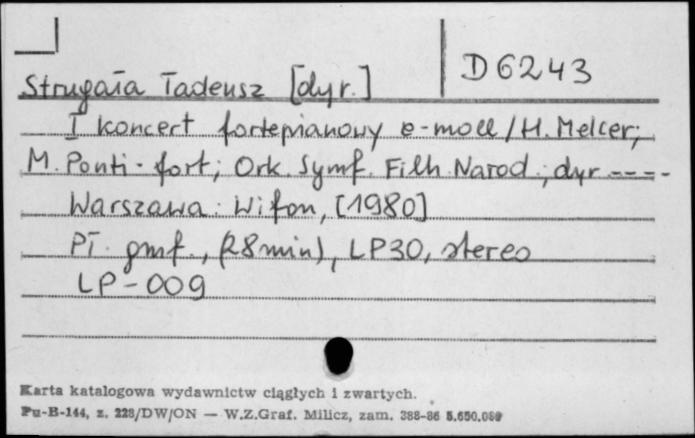 D 6243
Strugała Tadeusz [dyr.]
I koncert fortepianowy e-moll / H. Melcer;
M. Ponti - fort; Ork. Symf. Filh. Narod.; dyr ----
Warszawa: Wifon, [1980]
Pł. gmf., (28 min), LP30, stereo
LP-009
Karta katalogowa wydawnictw ciągłych i zwartych.
Pu-B-144, z. 228/DW/ON — W.Z.Graf. Milicz, zam. 388-86